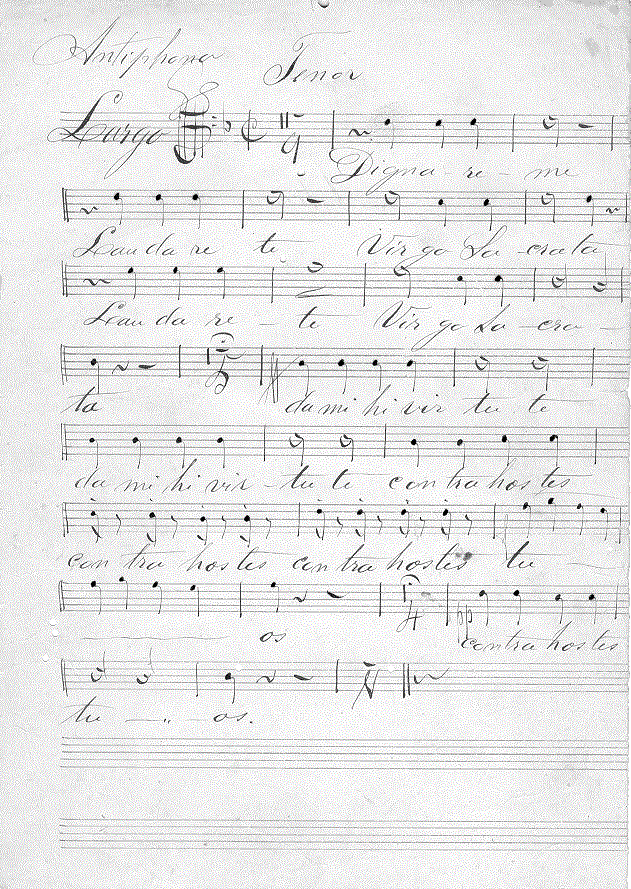 Antiphona Tenor
Largo 9
Digna - re - me
Lauda re te Vir go Sa - crata
Lauda re - te Vir go Sa - cra -
5
ta da mi hi vir tu te
da mi hi vir - tu te contra hostes
con tra hostes con tra hostes tu -
4 pp
os contra hostes
tu - " - os.